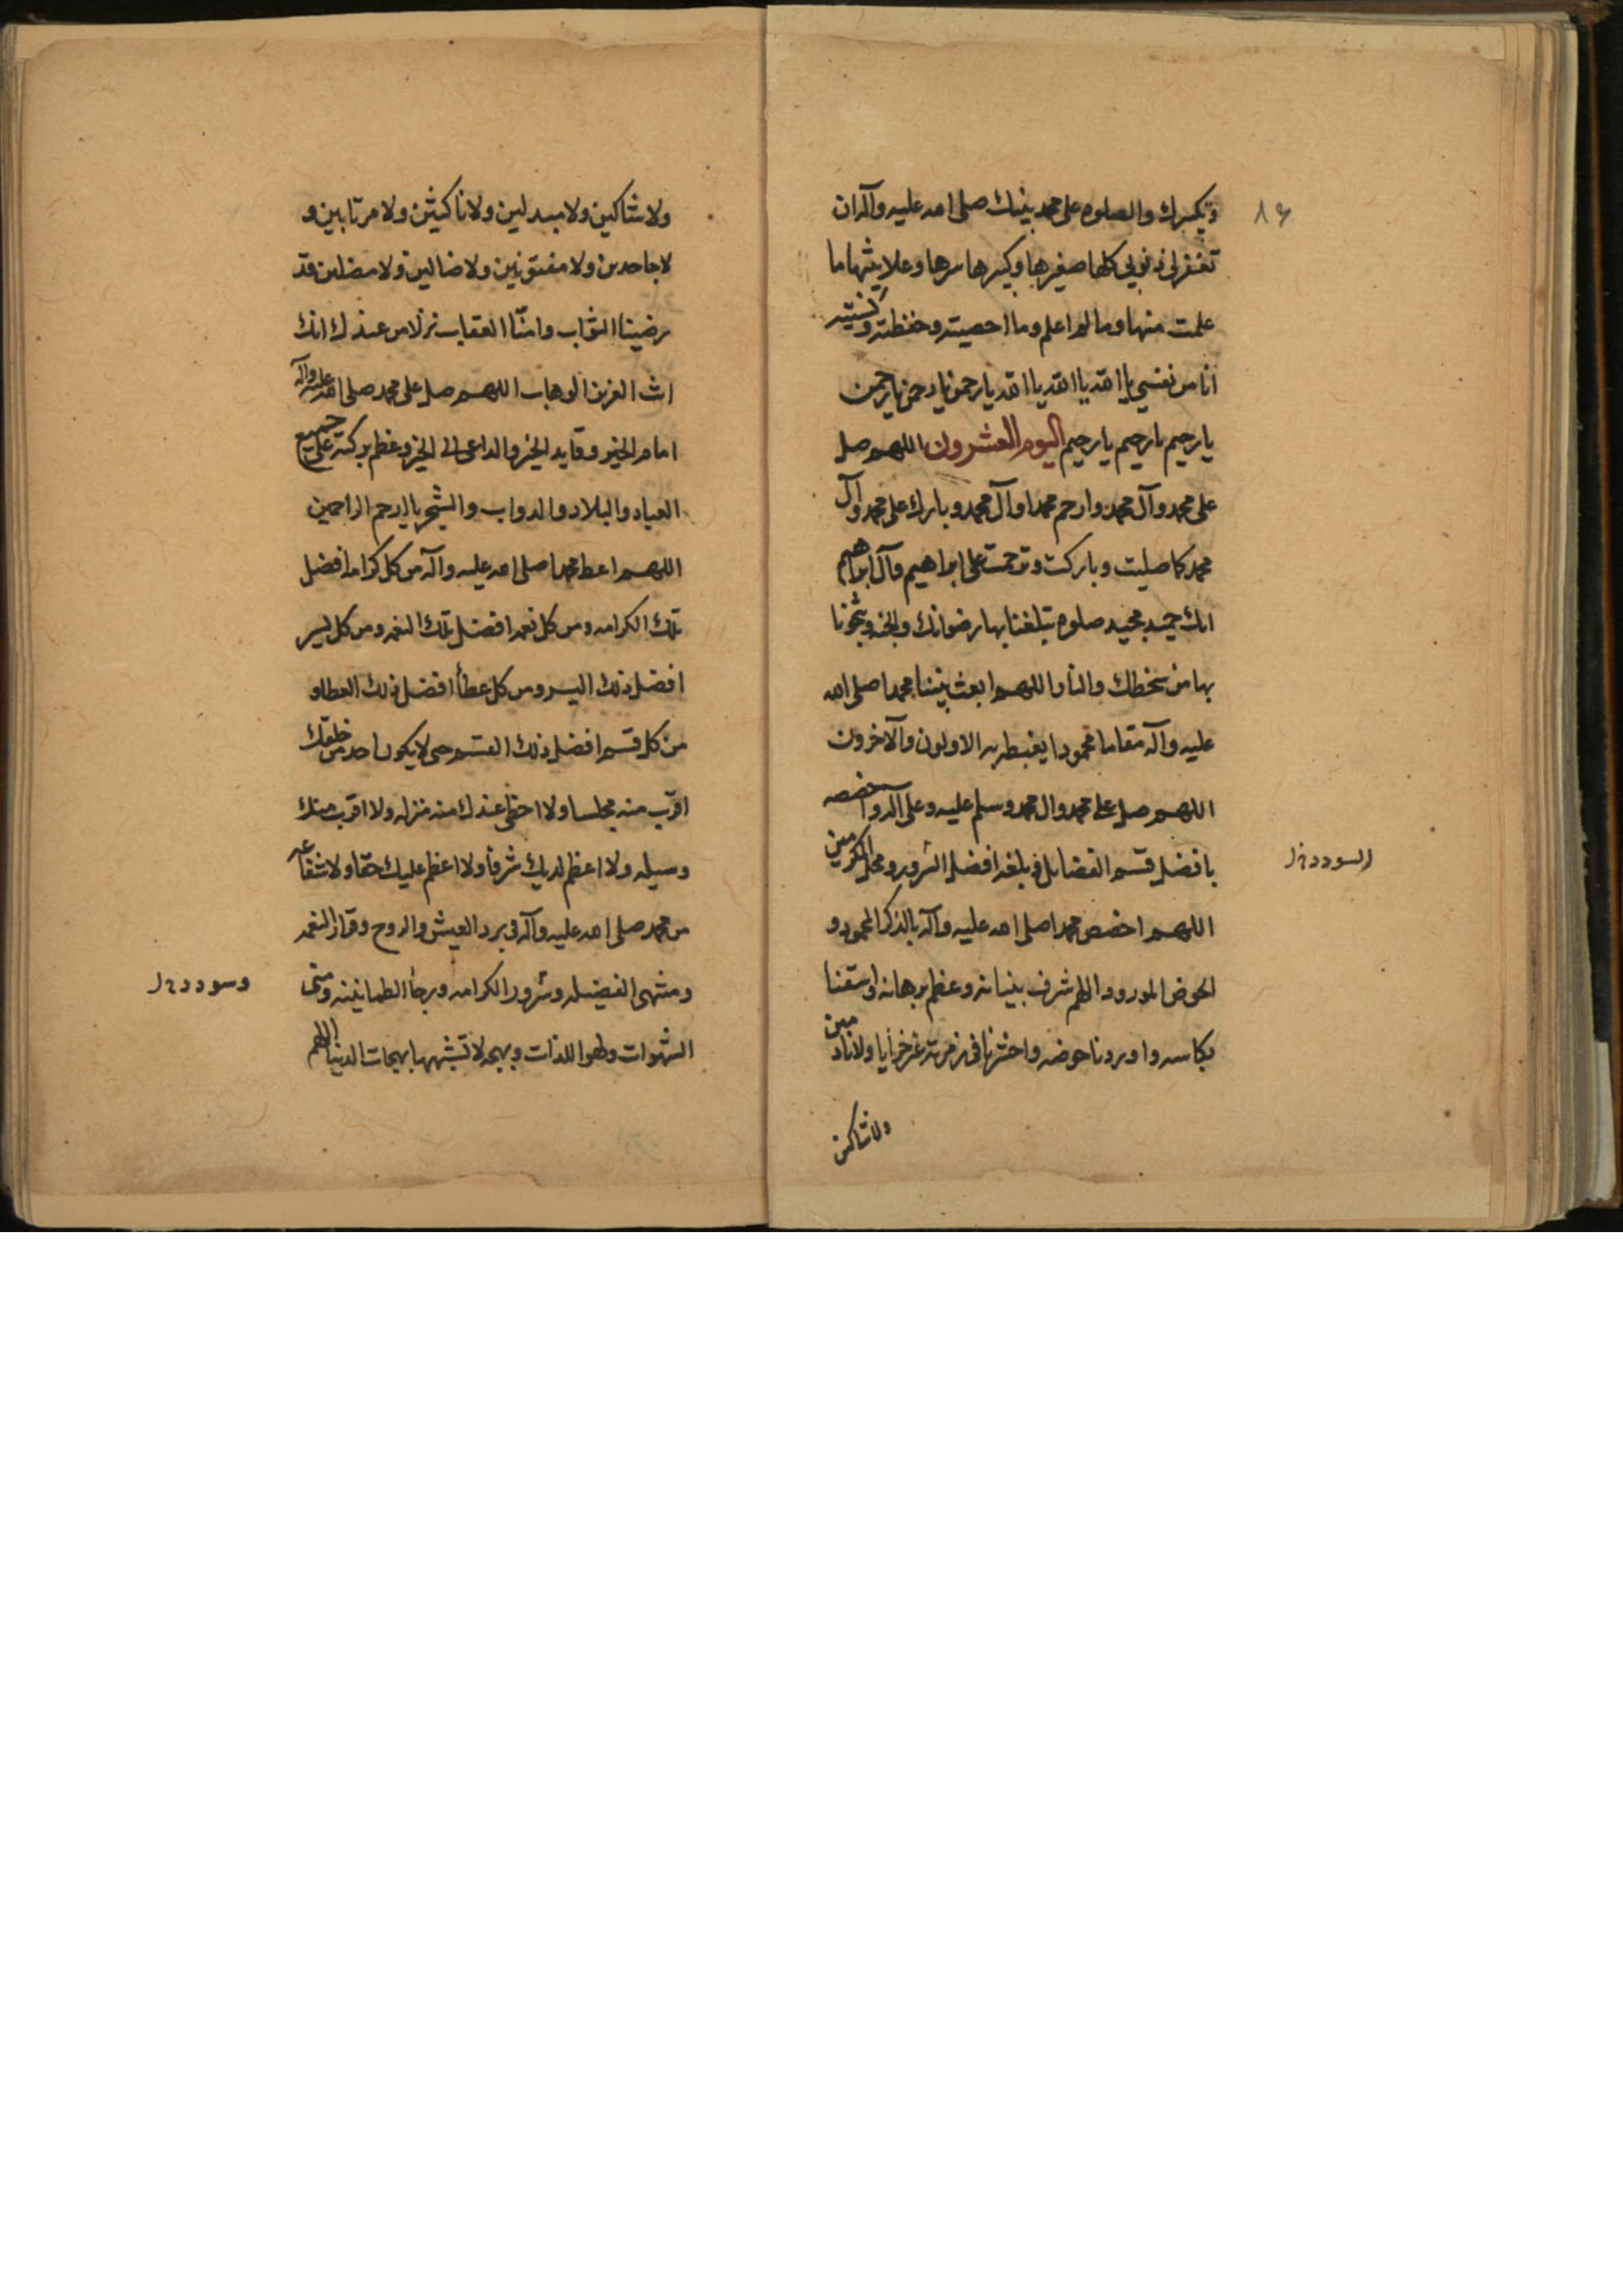 ۸۶
وبكبرك والصلوه على محمد نبيك صلى الله عليه وآله ان
تغفر لي ذنوبي كلها صغيرها وكبيرها سرها وعلانيتها ما
علمت منها وما لم اعلم وما احصيته وحفظته ونسيته
انا من نفسي يا الله يا الله يا الله يا رحمن يا رحمن يا رحمن
يا رحيم يا رحيم يا رحيم اليوم العشرون اللهم صل
على محمد وآل محمد وارحم محمدا وآل محمد وبارك على محمد وآل
محمد كما صليت وباركت وترحمت على ابراهيم وآل ابراهيم
انك حميد مجيد صلوه تبلغنا بها رضوانك والجنه وتنجونا
بها من سخطك والنار اللهم ابعث نبينا محمدا صلى الله
عليه وآله مقاما محمودا يغبطه به الاولون والآخرون
اللهم صل على محمد وال محمد وسلم عليه وعلى آله واخصصه
بافضل قسم الفضايل وبلغه افضل السرور ومحل المكرمين
السودد ن‍ل
اللهم اخصص محمدا صلى الله عليه وآله بالذكر المحمود و
الحوض المورود اللهم شرف بنيانه وعظم برهانه واسقنا
بكاسه واوردنا حوضه واحشرنا في زمرته غير خزايا ولا نادمين
ولا شاكين
ولا شاكين ولا مبدلين ولا ناكثين ولا مرتابين و
لا جاحدين ولا مفتونين ولا ضالين ولا مضلين قد
رضينا الثواب وامنّا العقاب نزلا من عندك انك
انت العزيز الوهاب اللهم صل على محمد صلى الله عليه وآله
امام الخير وقايد الخير والداعى الى الخير وعظم بركته على جميع
العباد والبلاد والدواب والشجر يا ارحم الراحمين
اللهم اعط محمدا صلى الله عليه وآله من كل كرامه افضل
تلك الكرامه ومن كل نعمه افضل تلك النعمه ومن كل يسر
افضل ذلك اليسر ومن كل عطأ افضل ذلك العطا و
من كل قسم افضل ذلك القسم حتى لا يكون احد من خلقك
اقرب منه مجلسا ولا احظى عندك منه منزله ولا اقرب منك
وسيله ولا اعظم لديك شرفا ولا اعظم عليك حقا ولا شفاعه
من محمد صلى الله عليه وآله في برد العيش والروح وقرار النعمه
ومنتهى الفضيله وسرور الكرامه ورجأ الطمانينه ومنى
وسودد ن‍ل
الشهوات ولهو اللذات وبهجه لا تشبهها بهجات الدنيا اللهم